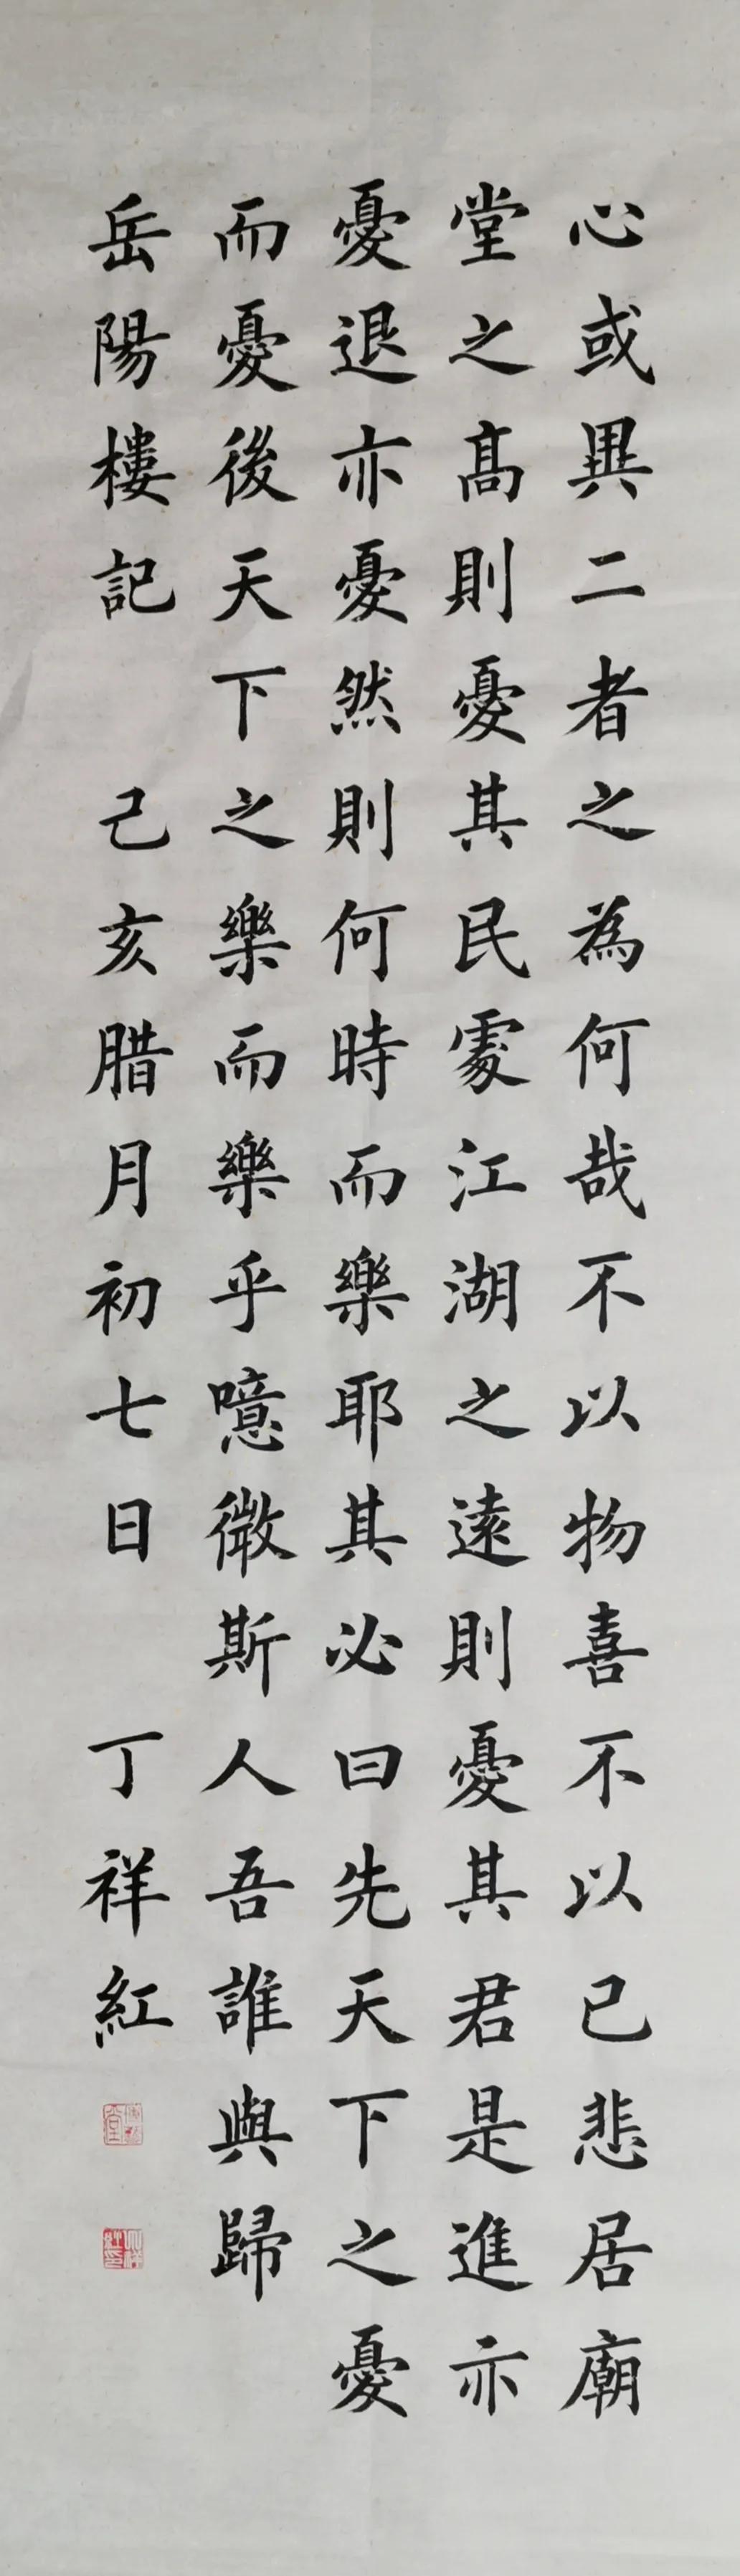 心或異二者之為何哉不以物喜不以己悲居廟
堂之髙則憂其民處江湖之遠則憂其君是進亦
憂退亦憂然則何時而樂耶其必曰先天下之憂
而憂後天下之樂而樂乎噫微斯人吾誰與歸
岳陽樓記 己亥腊月初七日 丁祥紅